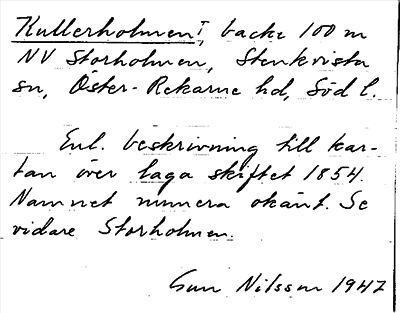 Kullerholmen I, backe 100 m
NV Storholmen, Stenkvista
sn, Öster-Rekarne hd, Söd l.
Enl. beskrivning till kar-
tan över laga skiftet 1854.
Namnet numera okänt. Se
vidare Storholmen.
Gun Nilsson 1947